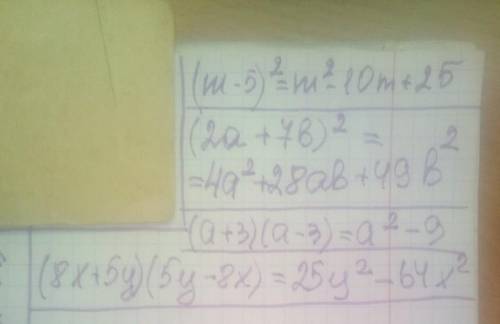 (m-5)²=m²-10m+25
(2a+7b)²=
=4a²+28ab+49b²
(a+3)(a-3)=a²-9
(8x+5y)(5y-8x)=25y²-64x²